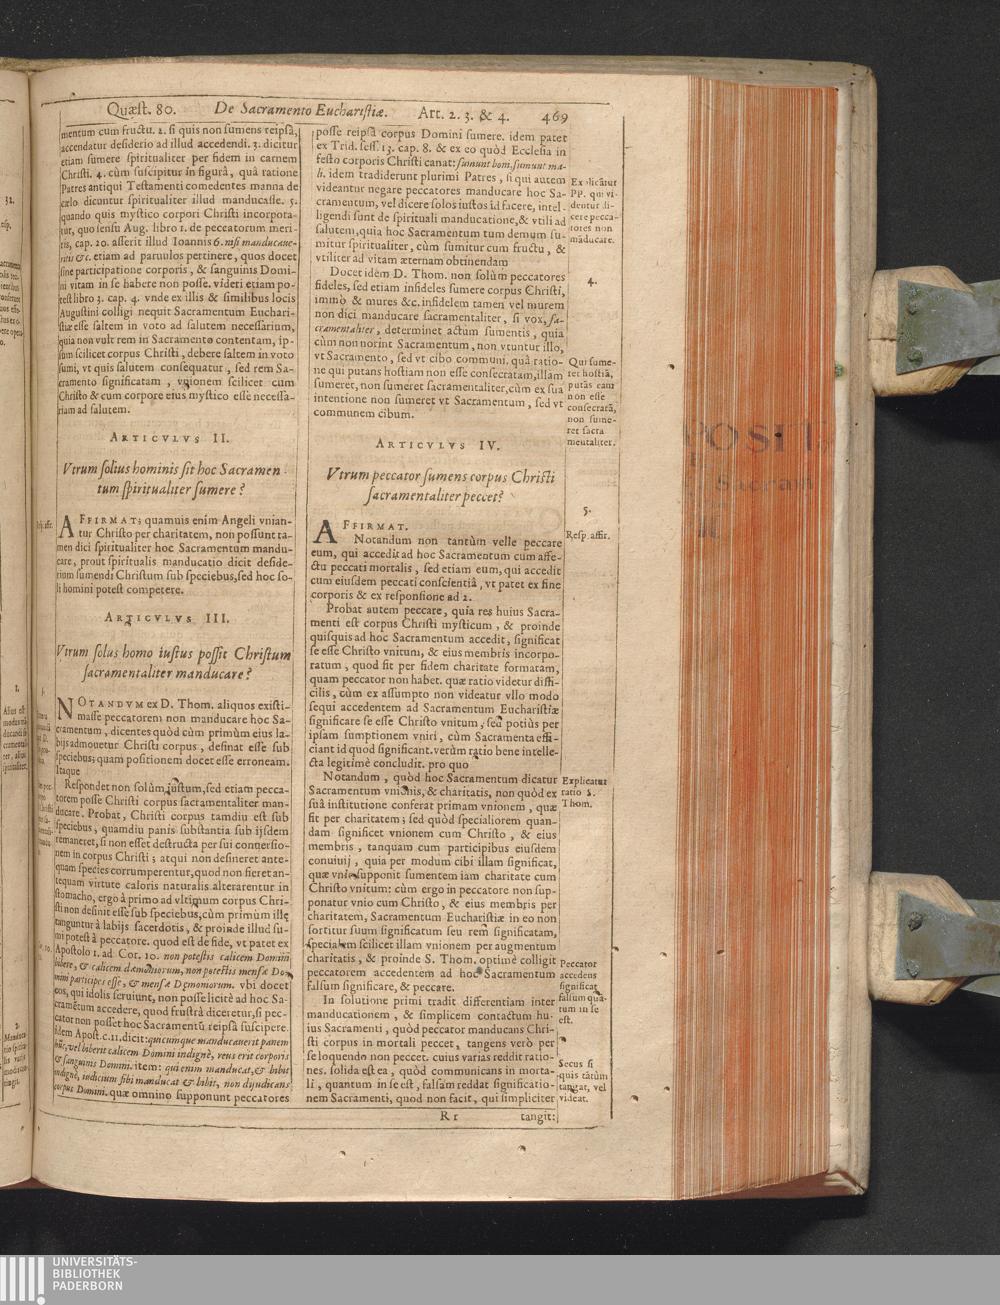 Quæst. 80. De Sacramento Eucharistiæ. Art. 2. 3. & 4. 469
mentum cum fructu. 2. si quis non sumens reipsâ,
accendatur desiderio ad illud accedendi. 3. dicitur
etiam sumere spiritualiter per fidem in carnem
Christi. 4. cùm suscipitur in figurâ, quâ ratione
Patres antiqui Testamenti comedentes manna de
cælo dicuntur spiritualiter illud manducasse. 5.
quando quis mystico corpori Christi incorpora-
tur, quo sensu Aug. libro 1. de peccatorum meri-
tis, cap. 20. asserit illud Ioannis 6. nisi manducaue-
ritis &c. etiam ad paruulos pertinere, quos docet
sine participatione corporis, & sanguinis Domi-
ni vitam in se habere non posse. videri etiam po-
test libro 3. cap. 4. vnde ex illis & similibus locis
Augustini colligi nequit Sacramentum Euchari-
stiæ esse saltem in voto ad salutem necessarium,
quia non vult rem in Sacramento contentam, ip-
sum scilicet corpus Christi, debere saltem in voto
sumi, vt quis salutem consequatur, sed rem Sa-
cramento significatam, vnionem scilicet cum
Christo & cum corpore eius mystico esse necessa-
riam ad salutem.
ARTICVLVS II.
Vtrum solius hominis sit hoc Sacramen-
tum spiritualiter sumere?
AFFIRMAT; quamuis enim Angeli vnian-
tur Christo per charitatem, non possunt ta-
men dici spiritualiter hoc Sacramentum mandu-
care, prout spiritualis manducatio dicit deside-
rium sumendi Christum sub speciebus, sed hoc so-
li homini potest competere.
ARTICVLVS III.
Vtrum solus homo iustus possit Christum
sacramentaliter manducare?
NOTANDVM ex D. Thom. aliquos existi-
masse peccatorem non manducare hoc Sa-
cramentum, dicentes quòd cùm primùm eius la-
bijs admouetur Christi corpus, desinat esse sub
speciebus; quam positionem docet esse erroneam.
Itaque
Respondet non solùm iustum, sed etiam pecca-
torem posse Christi corpus sacramentaliter man-
ducare. Probat, Christi corpus tamdiu est sub
speciebus, quamdiu panis substantia sub ijsdem
remaneret, si non esset destructa per sui conuersio-
nem in corpus Christi; atqui non desineret ante-
quam species corrumperentur, quod non fieret an-
tequam virtute caloris naturalis alterarentur in
stomacho, ergo à primo ad vltimum corpus Chri-
sti non desinit esse sub speciebus, cùm primùm ille
tanguntur à labijs sacerdotis, & proinde illud su-
mi potest à peccatore. quod est de fide, vt patet ex
Apostolo 1. ad Cor. 10. non potestis calicem Domini
bibere, & calicem dæmoniorum, non potestis mensæ Do-
mini participes esse, & mensæ Dæmoniorum. vbi docet
eos, qui idolis seruiunt, non posse licitè ad hoc Sa-
cramētum accedere, quod frustrà diceretur, si pec-
cator non posset hoc Sacramentū reipsâ suscipere.
idem Apost. c. 11. dicit: quicumque manducauerit panem
hūc, vel biberit calicem Domini indignè, reus erit corporis
& sanguinis Domini. item: qui enim manducat, & bibit
indignè, iudicium sibi manducat & bibit, non dijudicans
corpus Domini. quæ omnino supponunt peccatores
posse reipsâ corpus Domini sumere. idem patet
ex Trid. sess. 13. cap. 8. & ex eo quòd Ecclesia in
festo corporis Christi canat: sumunt boni, sumunt ma-
li. idem tradiderunt plurimi Patres, si qui autem
videantur negare peccatores manducare hoc Sa-
cramentum, vel dicere solos iustos id facere, intel-
ligendi sunt de spirituali manducatione, & vtili ad
salutem, quia hoc Sacramentum tum demum su-
mitur spiritualiter, cùm sumitur cum fructu, &
vtiliter ad vitam æternam obtinendam
Docet idem D. Thom. non solùm peccatores
fideles, sed etiam infideles sumere corpus Christi,
immò & mures &c. infidelem tamen vel murem
non dici manducare sacramentaliter, si vox, sa-
cramentaliter, determinet actum sumentis, quia
cùm non norint Sacramentum, non vtuntur illo,
vt Sacramento, sed vt cibo communi. quâ ratio-
ne qui putans hostiam non esse consecratam, illam
sumeret, non sumeret sacramentaliter, cùm ex sua
intentione non sumeret vt Sacramentum, sed vt
communem cibum.
ARTICVLVS IV.
Vtrum peccator sumens corpus Christi
sacramentaliter peccet?
AFFIRMAT.
Notandum non tantùm velle peccare
eum, qui accedit ad hoc Sacramentum cum affe-
ctu peccati mortalis, sed etiam eum, qui accedit
cum eiusdem peccati conscientiâ, vt patet ex fine
corporis & ex responsione ad 2.
Probat autem peccare, quia res huius Sacra-
menti est corpus Christi mysticum, & proinde
quisquis ad hoc Sacramentum accedit, significat
se esse Christo vnitum, & eius membris incorpo-
ratum, quod fit per fidem charitate formatam,
quam peccator non habet. quæ ratio videtur diffi-
cilis, cùm ex assumpto non videatur vllo modo
sequi accedentem ad Sacramentum Eucharistiæ
significare se esse Christo vnitum, sed potiùs per
ipsam sumptionem vniri, cùm Sacramenta effi-
ciant id quod significant. verùm ratio bene intelle-
cta legitimè concludit. pro quo
Notandum, quòd hoc Sacramentum dicatur
Sacramentum vnionis, & charitatis, non quòd ex
suâ institutione conferat primam vnionem, quæ
fit per charitatem; sed quòd specialiorem quan-
dam significet vnionem cum Christo, & eius
membris, tanquam cum participibus eiusdem
conuiuij, quia per modum cibi illam significat,
quæ vnio supponit sumentem iam charitate cum
Christo vnitum: cùm ergo in peccatore non sup-
ponatur vnio cum Christo, & eius membris per
charitatem, Sacramentum Eucharistiæ in eo non
sortitur suum significatum seu rem significatam,
specialem scilicet illam vnionem per augmentum
charitatis, & proinde S. Thom. optimè colligit
peccatorem accedentem ad hoc Sacramentum
falsum significare, & peccare.
In solutione primi tradit differentiam inter
manducationem, & simplicem contactum hu-
ius Sacramenti, quòd peccator manducans Chri-
sti corpus in mortali peccet, tangens verò per
se loquendo non peccet. cuius varias reddit ratio-
nes. solida est ea, quòd communicans in morta-
li, quantum in se est, falsam reddat significatio-
nem Sacramenti, quod non facit, qui simpliciter
Rr tangit:
Explicātur
PP. qui vi-
dentur di-
cere pecca-
tores non
māducare.
4.
Qui sume-
ret hostiā,
putās eam
non esse
consecratā,
non sume-
ret sacra
mentaliter.
5.
Resp. affir.
Explicatur
ratio S.
Thom.
Peccator
accedens
significat
falsum quā-
tum in se
est.
Secus si
quis tātùm
tangat, vel
videat.
UNIVERSITÄTS-
BIBLIOTHEK
PADERBORN